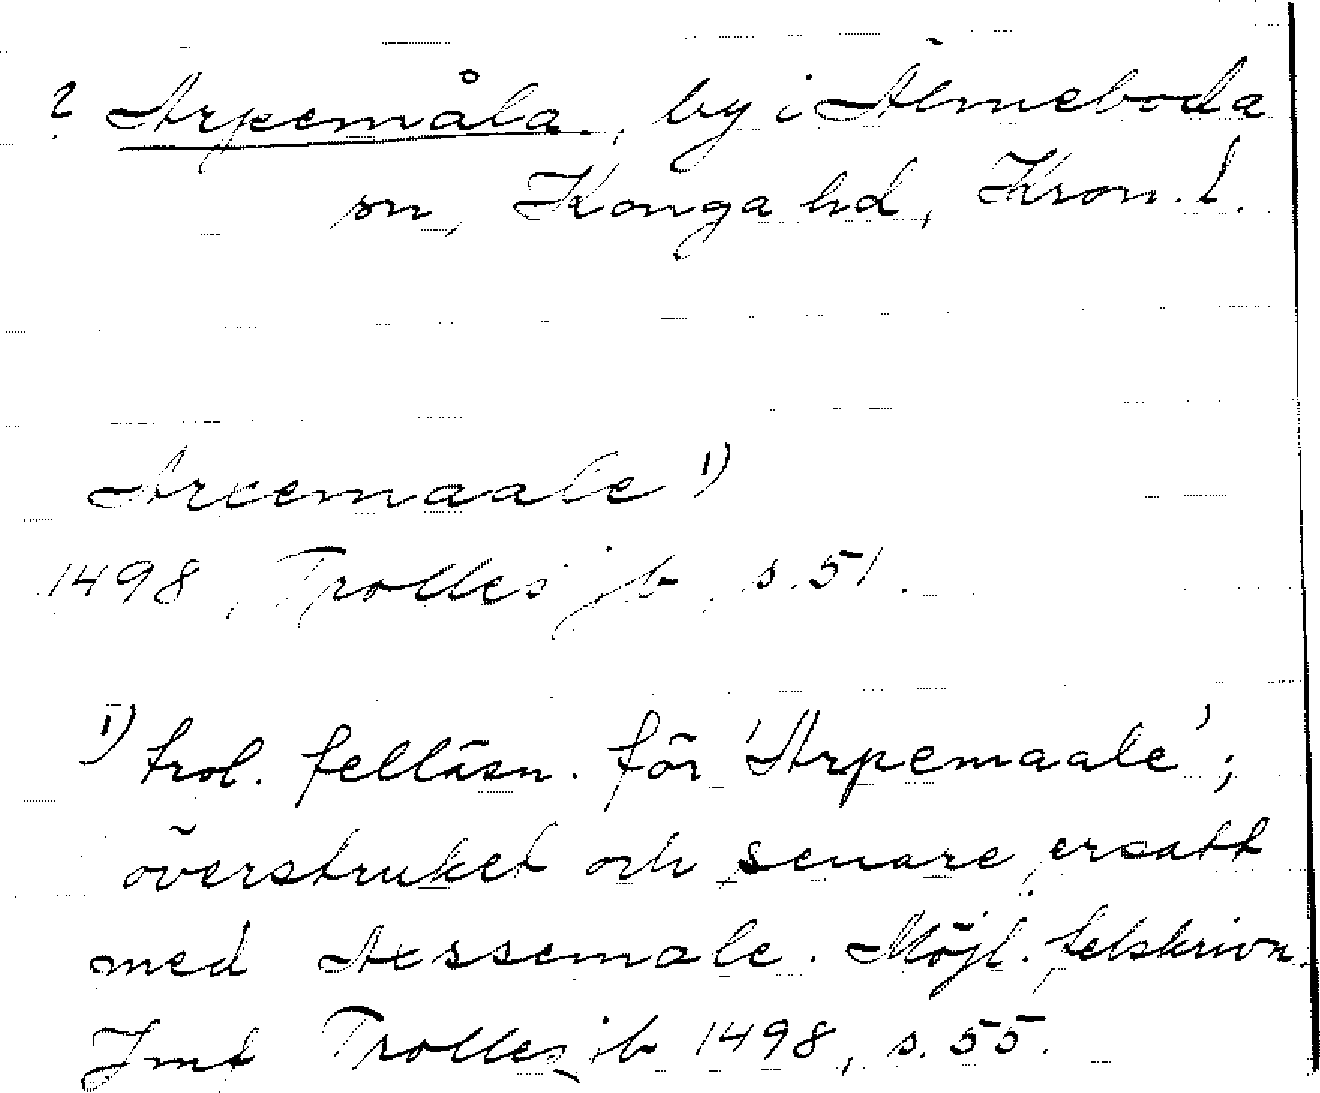 ? Arpemåla, by i Älmeboda
sn, Konga hd, Kron. l.
Arcemaale 1)
1498, Trolles jb, s. 51.
1) trol. felläsn. för 'Arpemaale';
överstruket och senare ersatt
med Aessemale. Möjl. felskrivn.
Jmf Trolles jb 1498, s. 55.